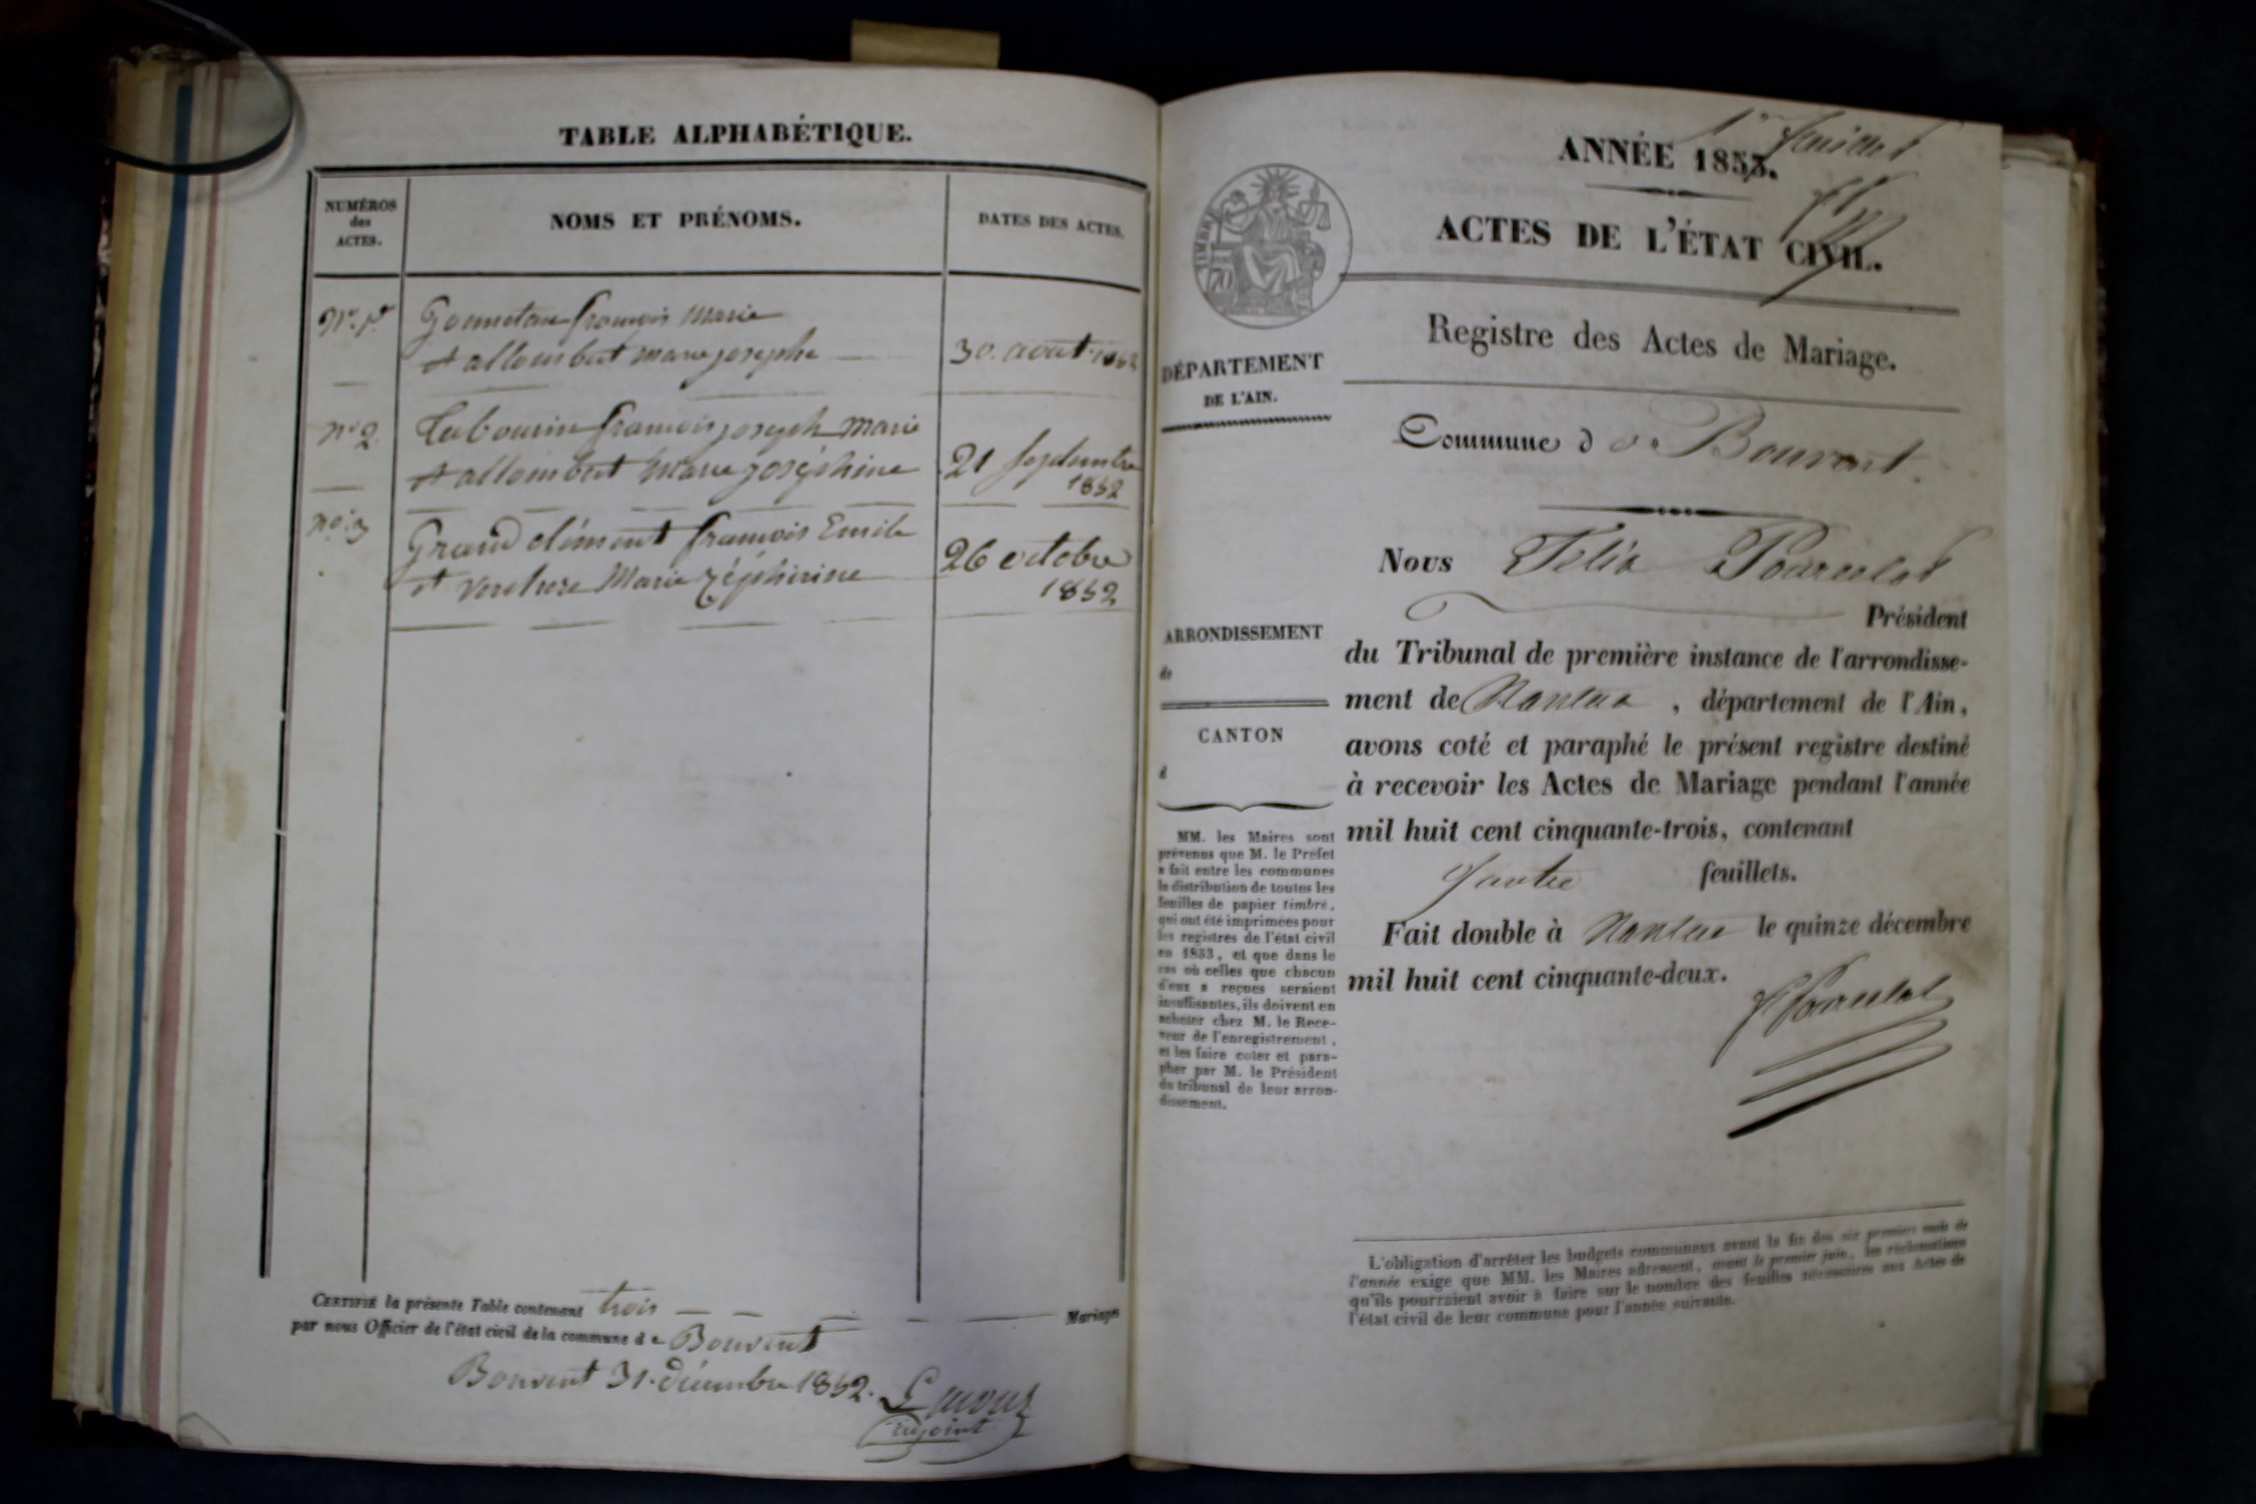 TABLE ALPHABÉTIQUE.
NUMÉROS
des
ACTES.
NOMS ET PRÉNOMS.
DATES DES ACTES.
françois Marie
et allombert marie josephe
30. aout 1852
N° 2
françois joseph Marie
et allombert Marie Joséphine
21 septembre
1852
N° 3
Grand clément françois Emile
et Verchere Marie Zéphirine
26 octobre
1852
CERTIFIÉ la présente Table contenant trois Mariages
par nous Officier de l'état civil de la commune de Bouvent
Bouvent 31. décembre 1852.
adjoint
ANNÉE 1853.
ACTES DE L'ÉTAT CIVIL.
TIMBRE
70
Registre des Actes de Mariage.
DÉPARTEMENT
DE L'AIN.
Commune de Bouvent.
Nous Félix
Président
ARRONDISSEMENT
de
CANTON
d
du Tribunal de première instance de l'arrondisse-
ment de Nantua, département de l'Ain,
avons coté et paraphé le présent registre destiné
à recevoir les Actes de Mariage pendant l'année
mil huit cent cinquante-trois, contenant
feuillets.
Fait double à Nantua le quinze décembre
mil huit cent cinquante-deux.
MM. les Maires sont
prévenus que M. le Préfet
a fait entre les communes
la distribution de toutes les
feuilles de papier timbré,
qui ont été imprimées pour
les registres de l'état civil
en 1853, et que dans le
cas où celles que chacun
d'eux a reçues seraient
insuffisantes, ils doivent en
acheter chez M. le Rece-
veur de l'enregistrement,
et les faire coter et para-
pher par M. le Président
du tribunal de leur arron-
dissement.
L'obligation d'arrêter les budgets communaux avant la fin des six premiers mois de
l'année exige que MM. les Maires adressent, avant le premier juin, les réclamations
qu'ils pourraient avoir à faire sur le nombre des feuilles nécessaires aux Actes de
l'état civil de leur commune pour l'année suivante.